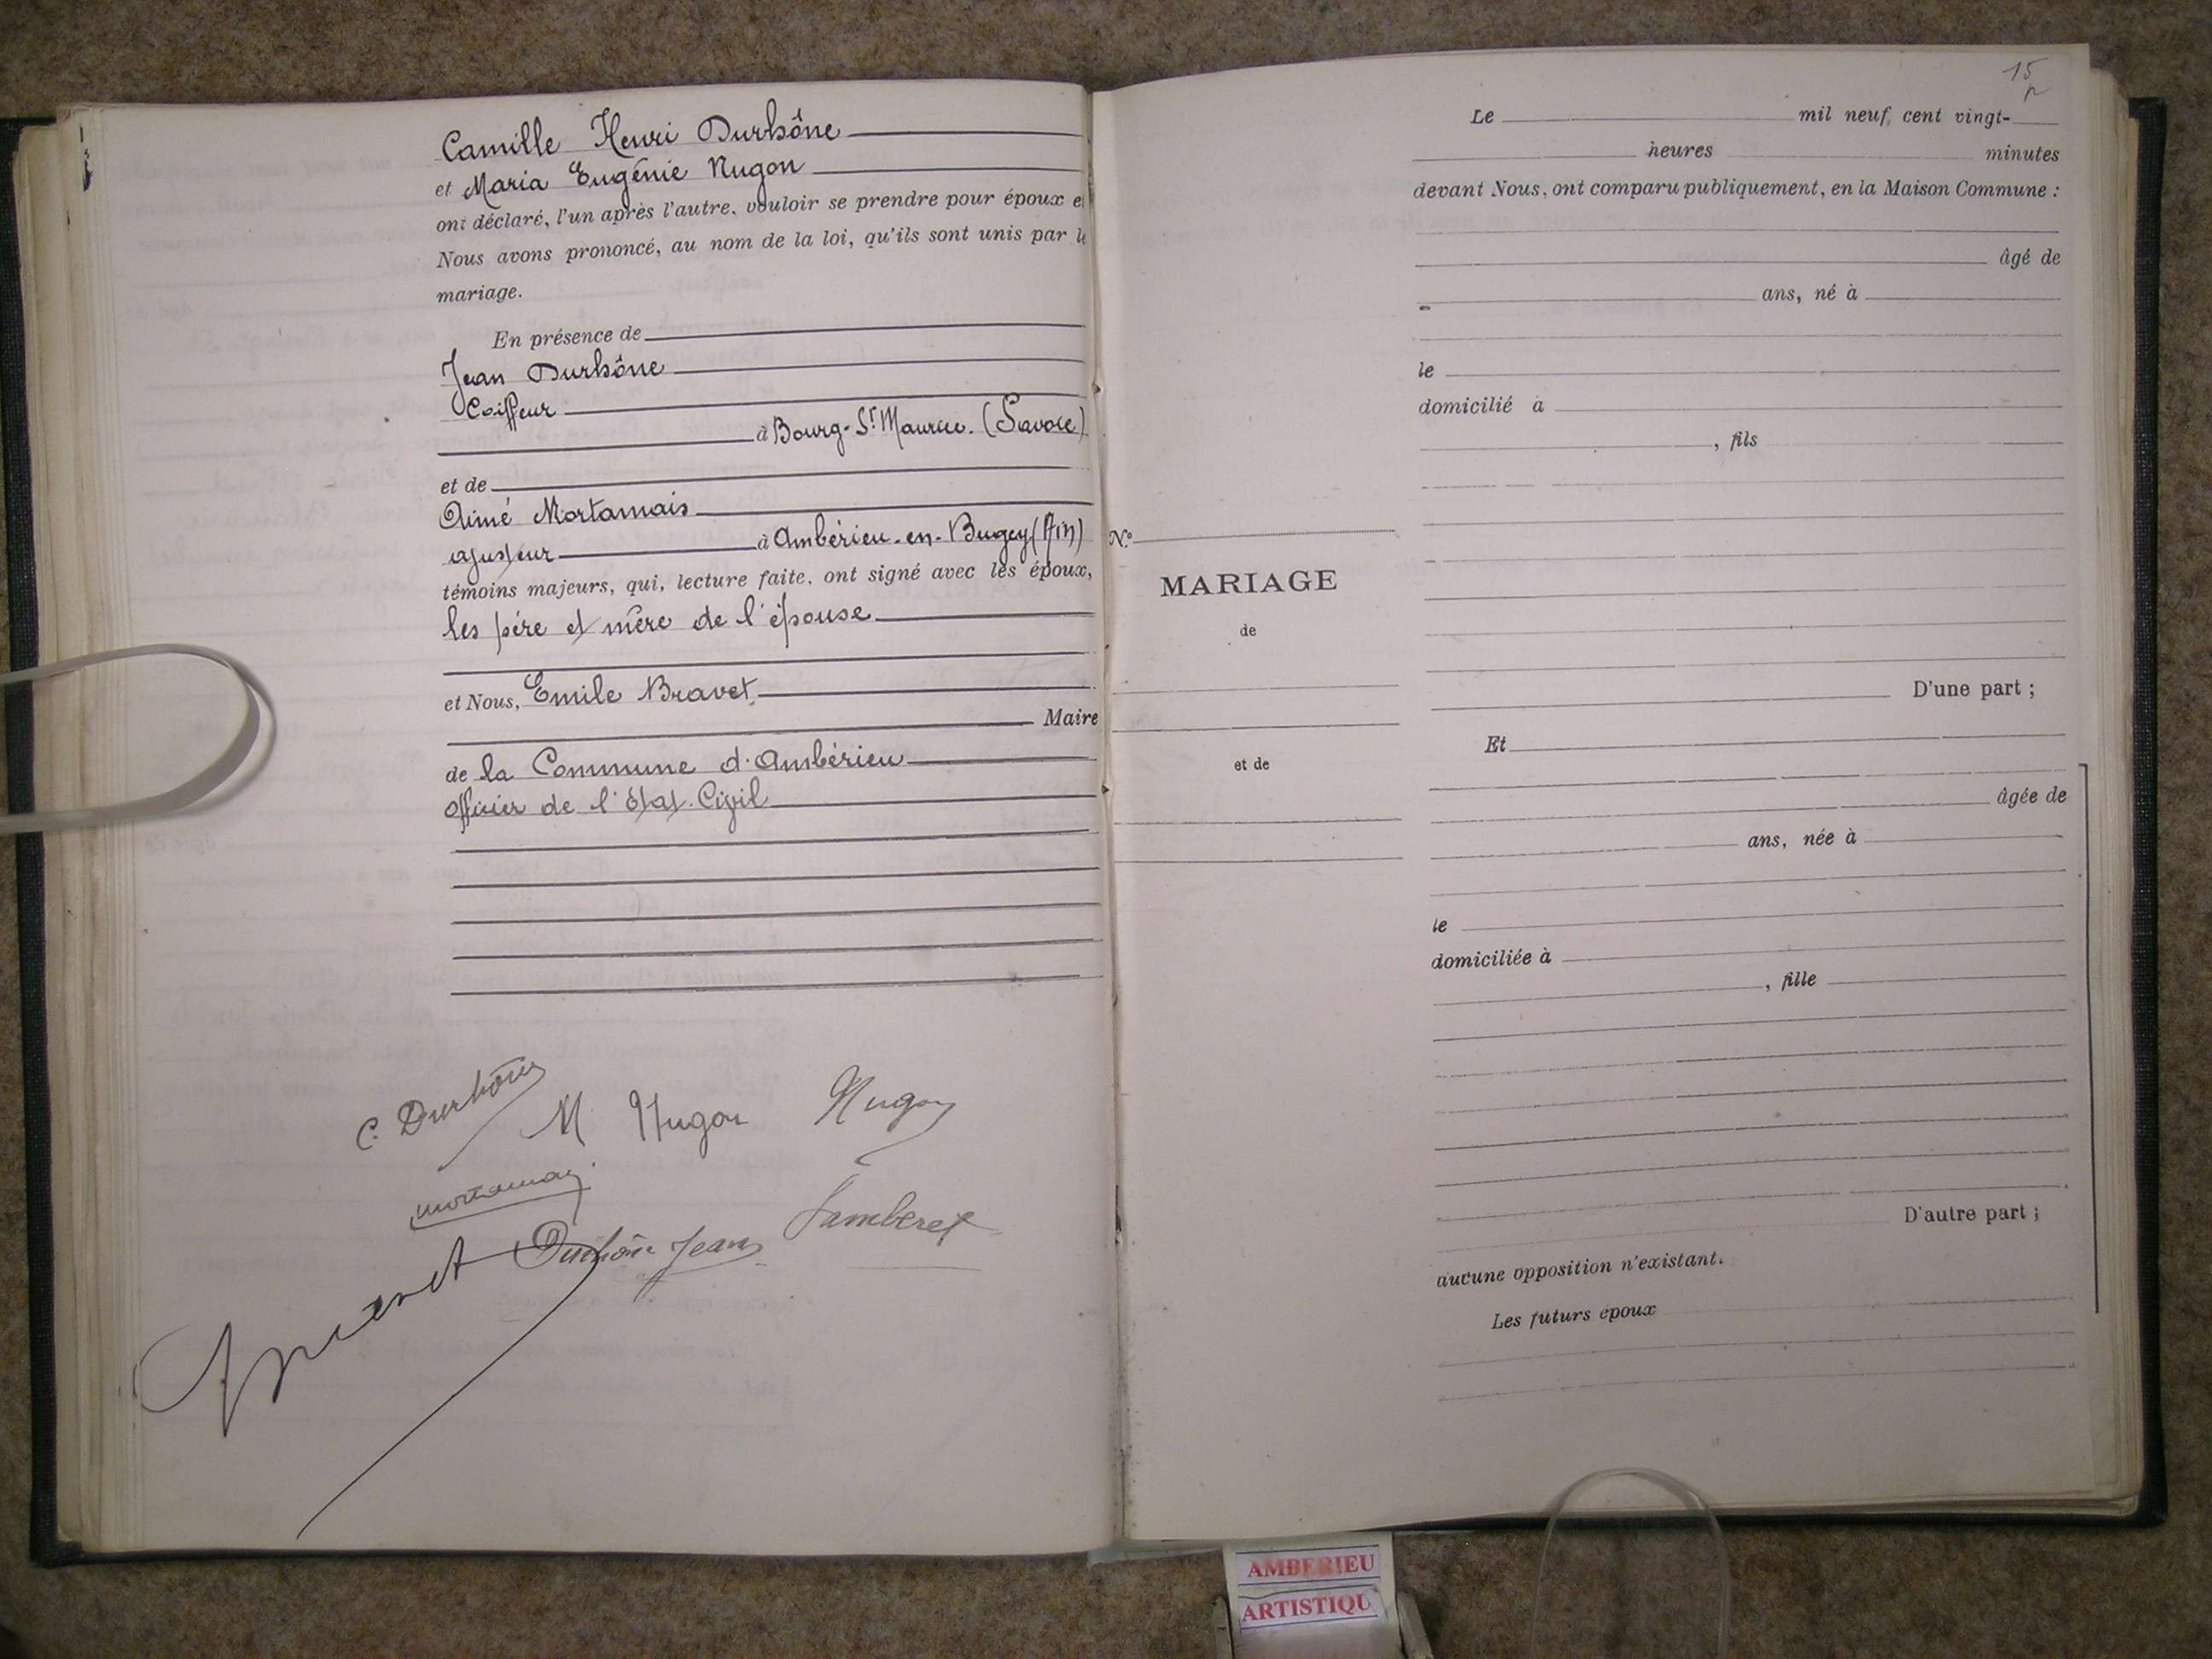 Camille Henri Durhône
et Maria Eugénie Nugon
ont déclaré, l'un après l'autre, vouloir se prendre pour époux e
Nous avons prononcé, au nom de la loi, qu'ils sont unis par le
mariage.
En présence de
Jean Durhône
Coiffeur
à Bourg-St Maurice. (Savoie)
et de
Aimé Mortamais
ajusteur à Ambérieu-en-Bugey (Ain)
témoins majeurs, qui, lecture faite, ont signé avec les époux,
les père et mère de l'épouse
et Nous, Emile Bravet
Maire
de la Commune d'Ambérieu
officier de l'Etat-Civil
C. Durhône
M Nugon
Nugon
mortamais
Durhône Jean
Jamberet
Bravet
N°
MARIAGE
de
et de
15
Le mil neuf cent vingt-
heures minutes
devant Nous, ont comparu publiquement, en la Maison Commune :
âgé de
ans, né à
le
domicilié à
, fils
D'une part ;
Et
âgée de
ans, née à
le
domiciliée à
, fille
D'autre part ;
aucune opposition n'existant.
Les futurs époux
AMBERIEU
ARTISTIQU